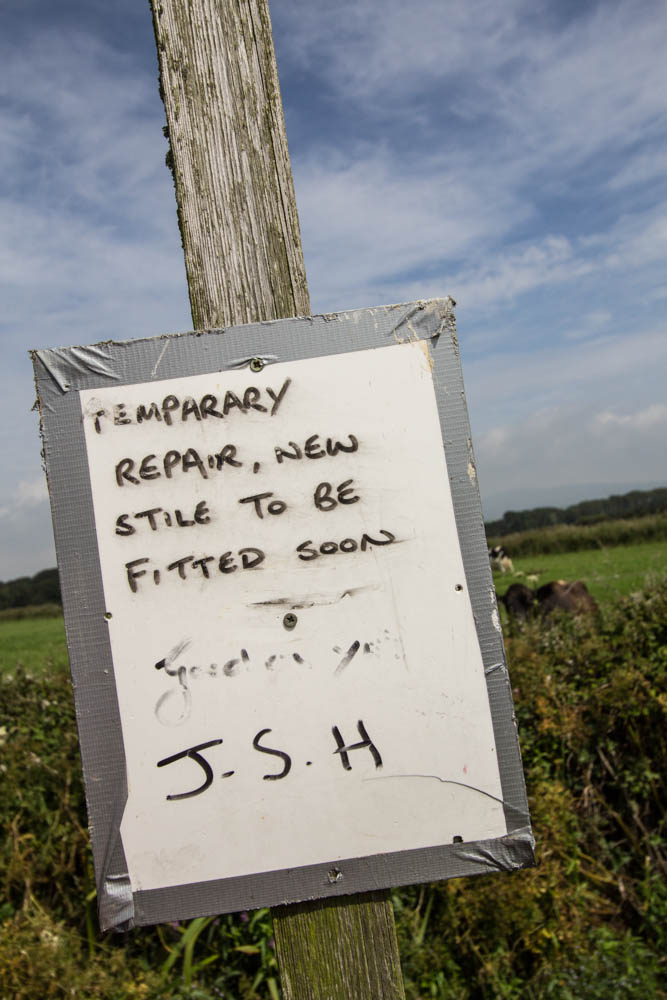 TEMPARARY
REPAIR, NEW
STILE TO BE
FITTED SOON
Good on
J.S.H